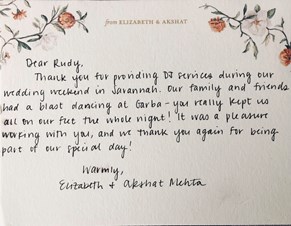 from ELIZABETH & AKSHAT
Dear Rudy,
Thank you for providing DJ services during our
wedding weekend in Savannah. Our family and friends
had a blast dancing at Garba - you really kept us
all on our feet the whole night! It was a pleasure
working with you, and we thank you again for being
part of our special day!
Warmly,
Elizabeth & Akshat Mehta